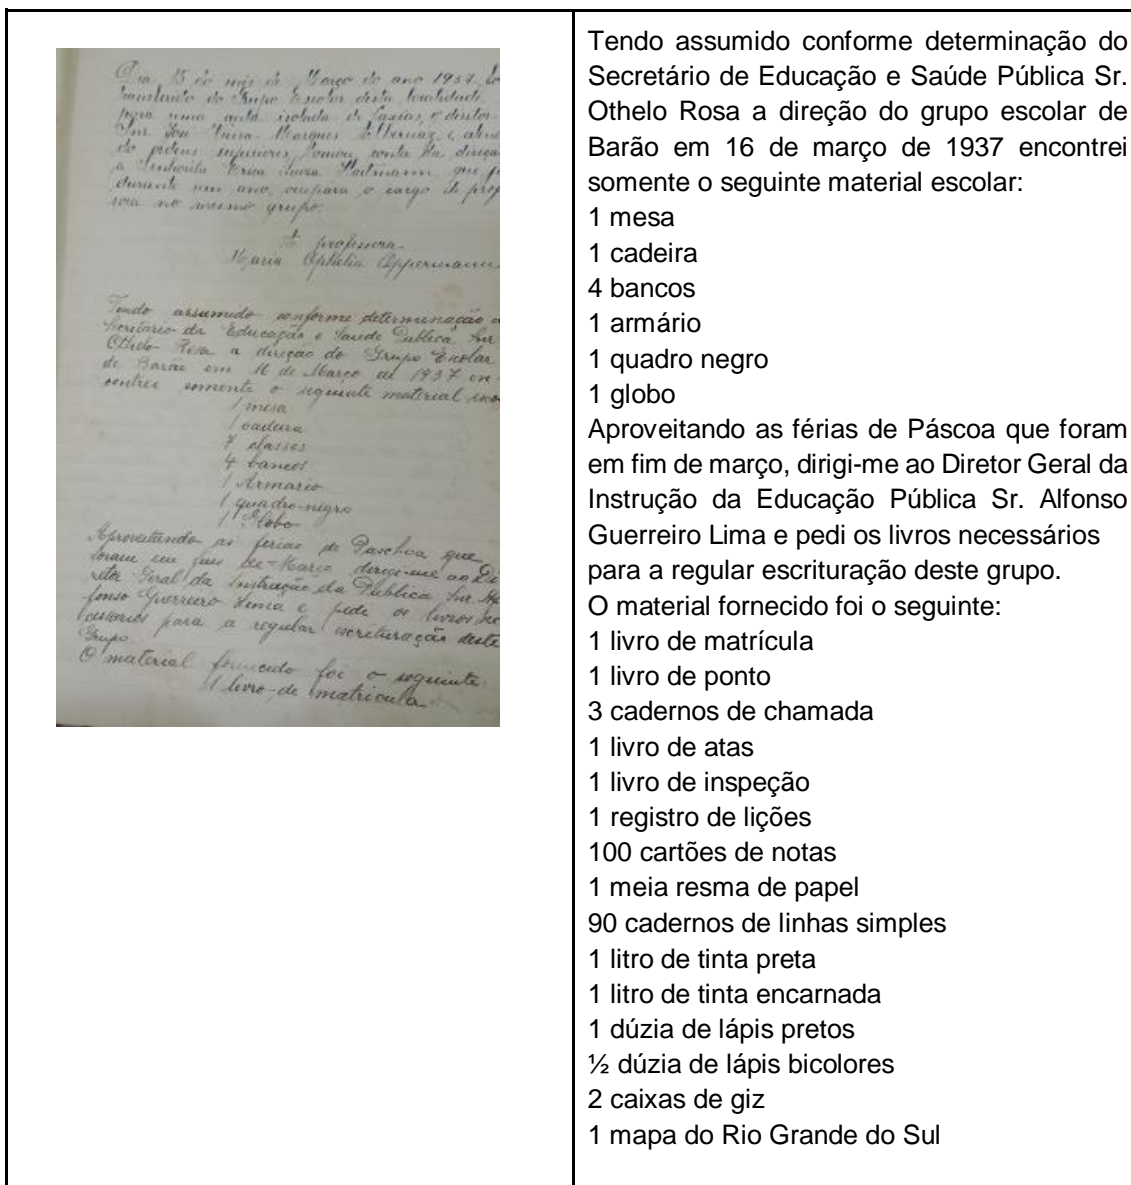 Dia 15 do mês de Março do ano 1937, fo
transferido do Grupo Escolar desta localidade,
para uma aula isolada de Caxias, o diretor
Snr. José Marques
do ordens superiores, tomou conta da direçã
a Senhorita Erica Luiza Hartmann, que já
durante um ano, ocupara o cargo de prof
sora no mesmo grupo.
A professora
Maria Ophelia Oppermann
Tendo assumido conforme determinação d
Secretario da Educação e Saude Publica Snr
Othelo Rosa a direção do Grupo Escolar
de Barão em 16 de Março de 1937 en-
contrei somente o seguinte material esco
1 mesa
1 cadeira
7 classes
4 bancos
1 Armario
1 quadro-negro
1 Globo
Aproveitando as ferias de Paschoa que
foram em fins de Março dirigi-me ao Di
retor Geral da Instrução da Publica Snr. Al
fonso Guerreiro Lima e pede os livros ne
cessarios para a regular escrituração deste
Grupo.
O material fornecido foi o seguinte:
1 livro de matricula
Tendo assumido conforme determinação do
Secretário de Educação e Saúde Pública Sr.
Othelo Rosa a direção do grupo escolar de
Barão em 16 de março de 1937 encontrei
somente o seguinte material escolar:
1 mesa
1 cadeira
4 bancos
1 armário
1 quadro negro
1 globo
Aproveitando as férias de Páscoa que foram
em fim de março, dirigi-me ao Diretor Geral da
Instrução da Educação Pública Sr. Alfonso
Guerreiro Lima e pedi os livros necessários
para a regular escrituração deste grupo.
O material fornecido foi o seguinte:
1 livro de matrícula
1 livro de ponto
3 cadernos de chamada
1 livro de atas
1 livro de inspeção
1 registro de lições
100 cartões de notas
1 meia resma de papel
90 cadernos de linhas simples
1 litro de tinta preta
1 litro de tinta encarnada
1 dúzia de lápis pretos
½ dúzia de lápis bicolores
2 caixas de giz
1 mapa do Rio Grande do Sul